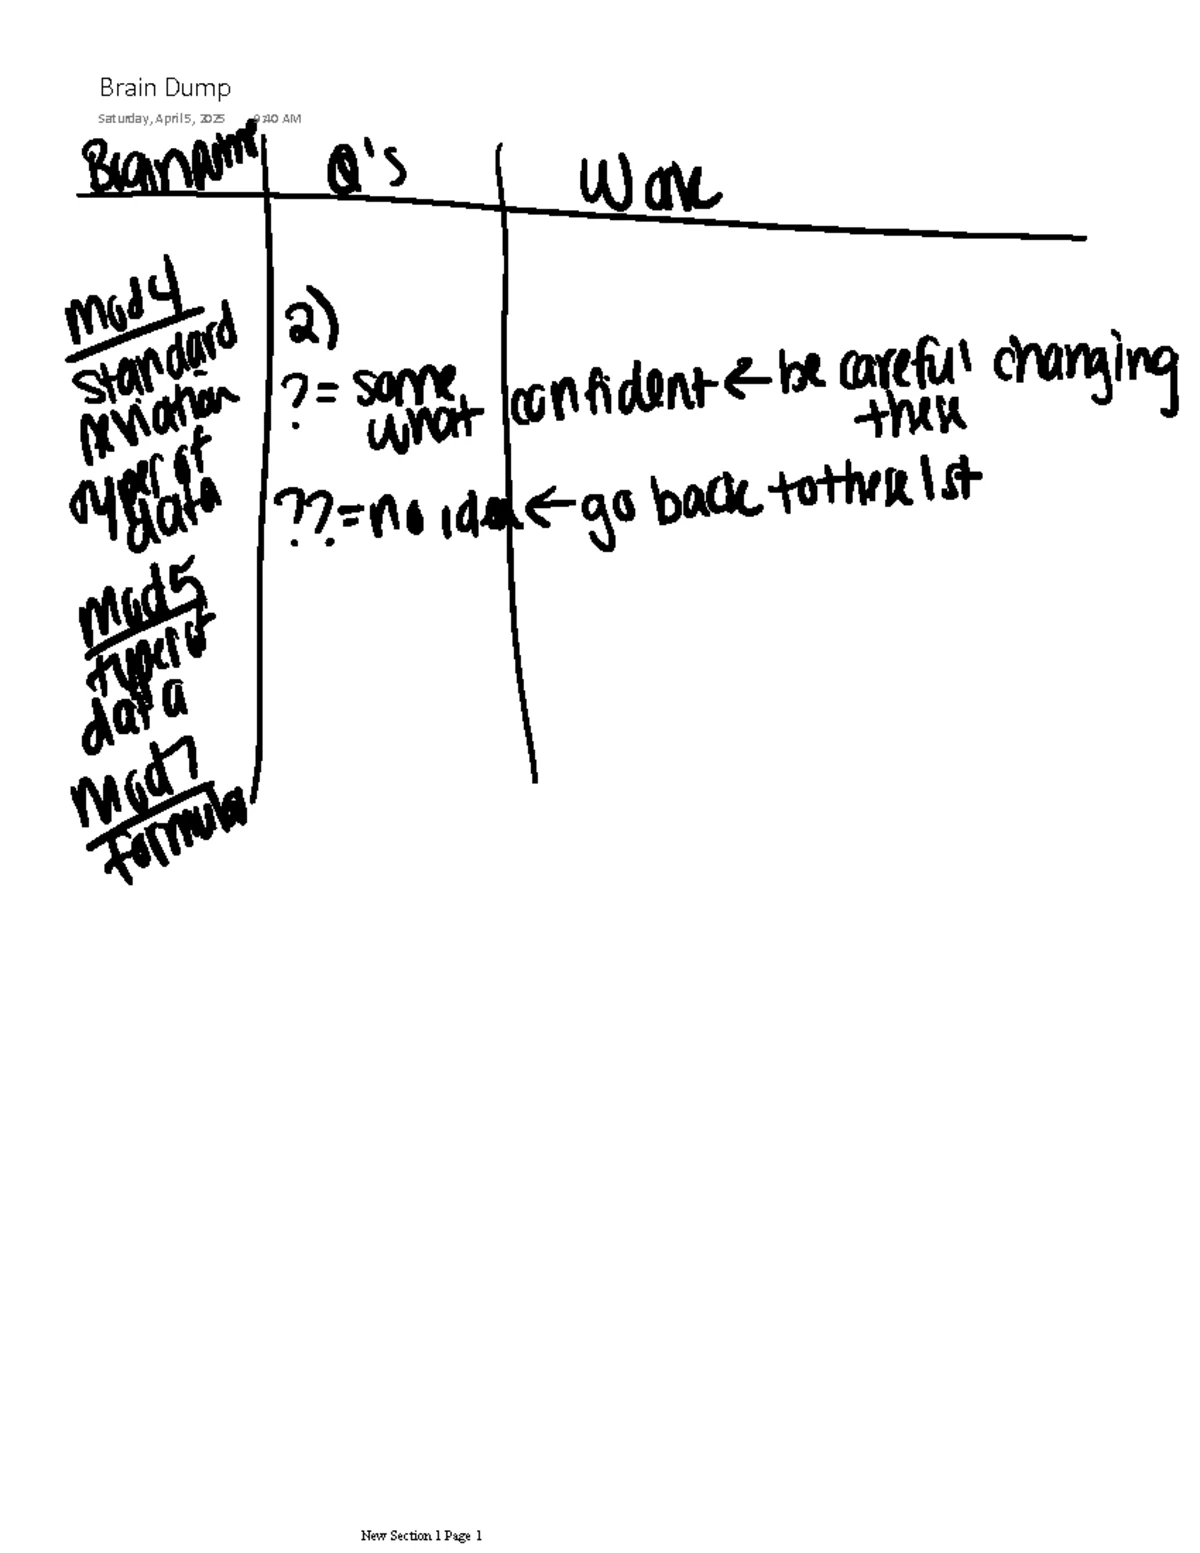 Brain Dump
Saturday, April 5, 2025 9:40 AM
Brain Dump Q's Work
Mod 4
Standard
Deviation
types of
data
Mod 5
types of
data
Mod 7
Formulas
2)
? = some what confident ← be careful changing
these
?? = no idea ← go back to these 1st
New Section 1 Page 1